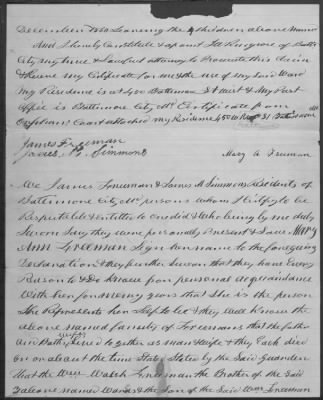 December 1880 Leaving the 4 children above Named
And I hereby Constitute & apoint of Balto
City my true & Lawful attorney to Prosecute this Claim
& Receive my Certificate for me & the use of my Said Ward
My Residence is at 450 Baltimore Street & My Post
office is Baltimore City Md Certificate from
Orphans Court attached my Residence 450 W Balto St Baltimore
James Freeman
James M. Simmons
Mary A Freeman
We James Freeman & James M Simmons Residents of
Baltimore City Md persons whom I Certify to be
Respectable & entitled to Credit & Who being by me duly
Sworn Say they were personally Present & Saw Mary
Ann Freeman Sign her name to the foregoing
Declaration & they further Swear that they have Every
Reason to & Do Know from personal acquaintance
With her for many years that She is the person
She Represents her Self to be & they well Know the
above named family of Freemans that the father
and Mother lived together as man & wife & they Each died
on or about the time Stated by the Said Guardian
that the Wm Walsh Freeman the Brother of the Said
above named Wards & the Son of the Said Wm Freeman